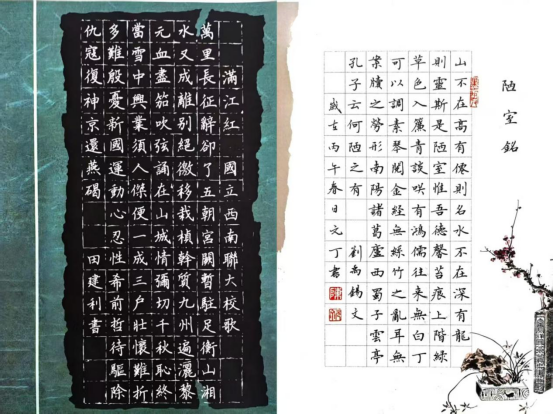 滿江紅 國立西南聯大校歌
萬里長征辭卻了五朝宮闕暫駐足衡山湘
水又成離別絕徼移栽楨幹質九州遍灑黎
元血盡笳吹弦誦在山城情彌切千秋恥終
當雪中興業須人傑便一成三戶壯懷難折
多難殷憂新國運動心忍性希前哲待驅除
仇寇復神京還燕碣 田建利書
陋室銘
山不在高有僊則名水不在深有龍
則靈斯是陋室惟吾德馨苔痕上階綠
草色入簾青談笑有鴻儒往來無白丁
可以調素琴閱金經無絲竹之亂耳無
案牘之勞形南陽諸葛廬西蜀子雲亭
孔子云何陋之有 劉禹錫文
歲在丙午春日元丁書